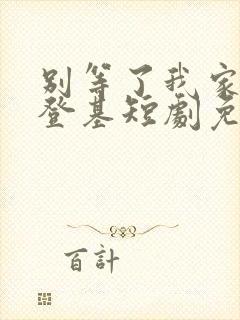 别等了我家
登基短劇免
百計